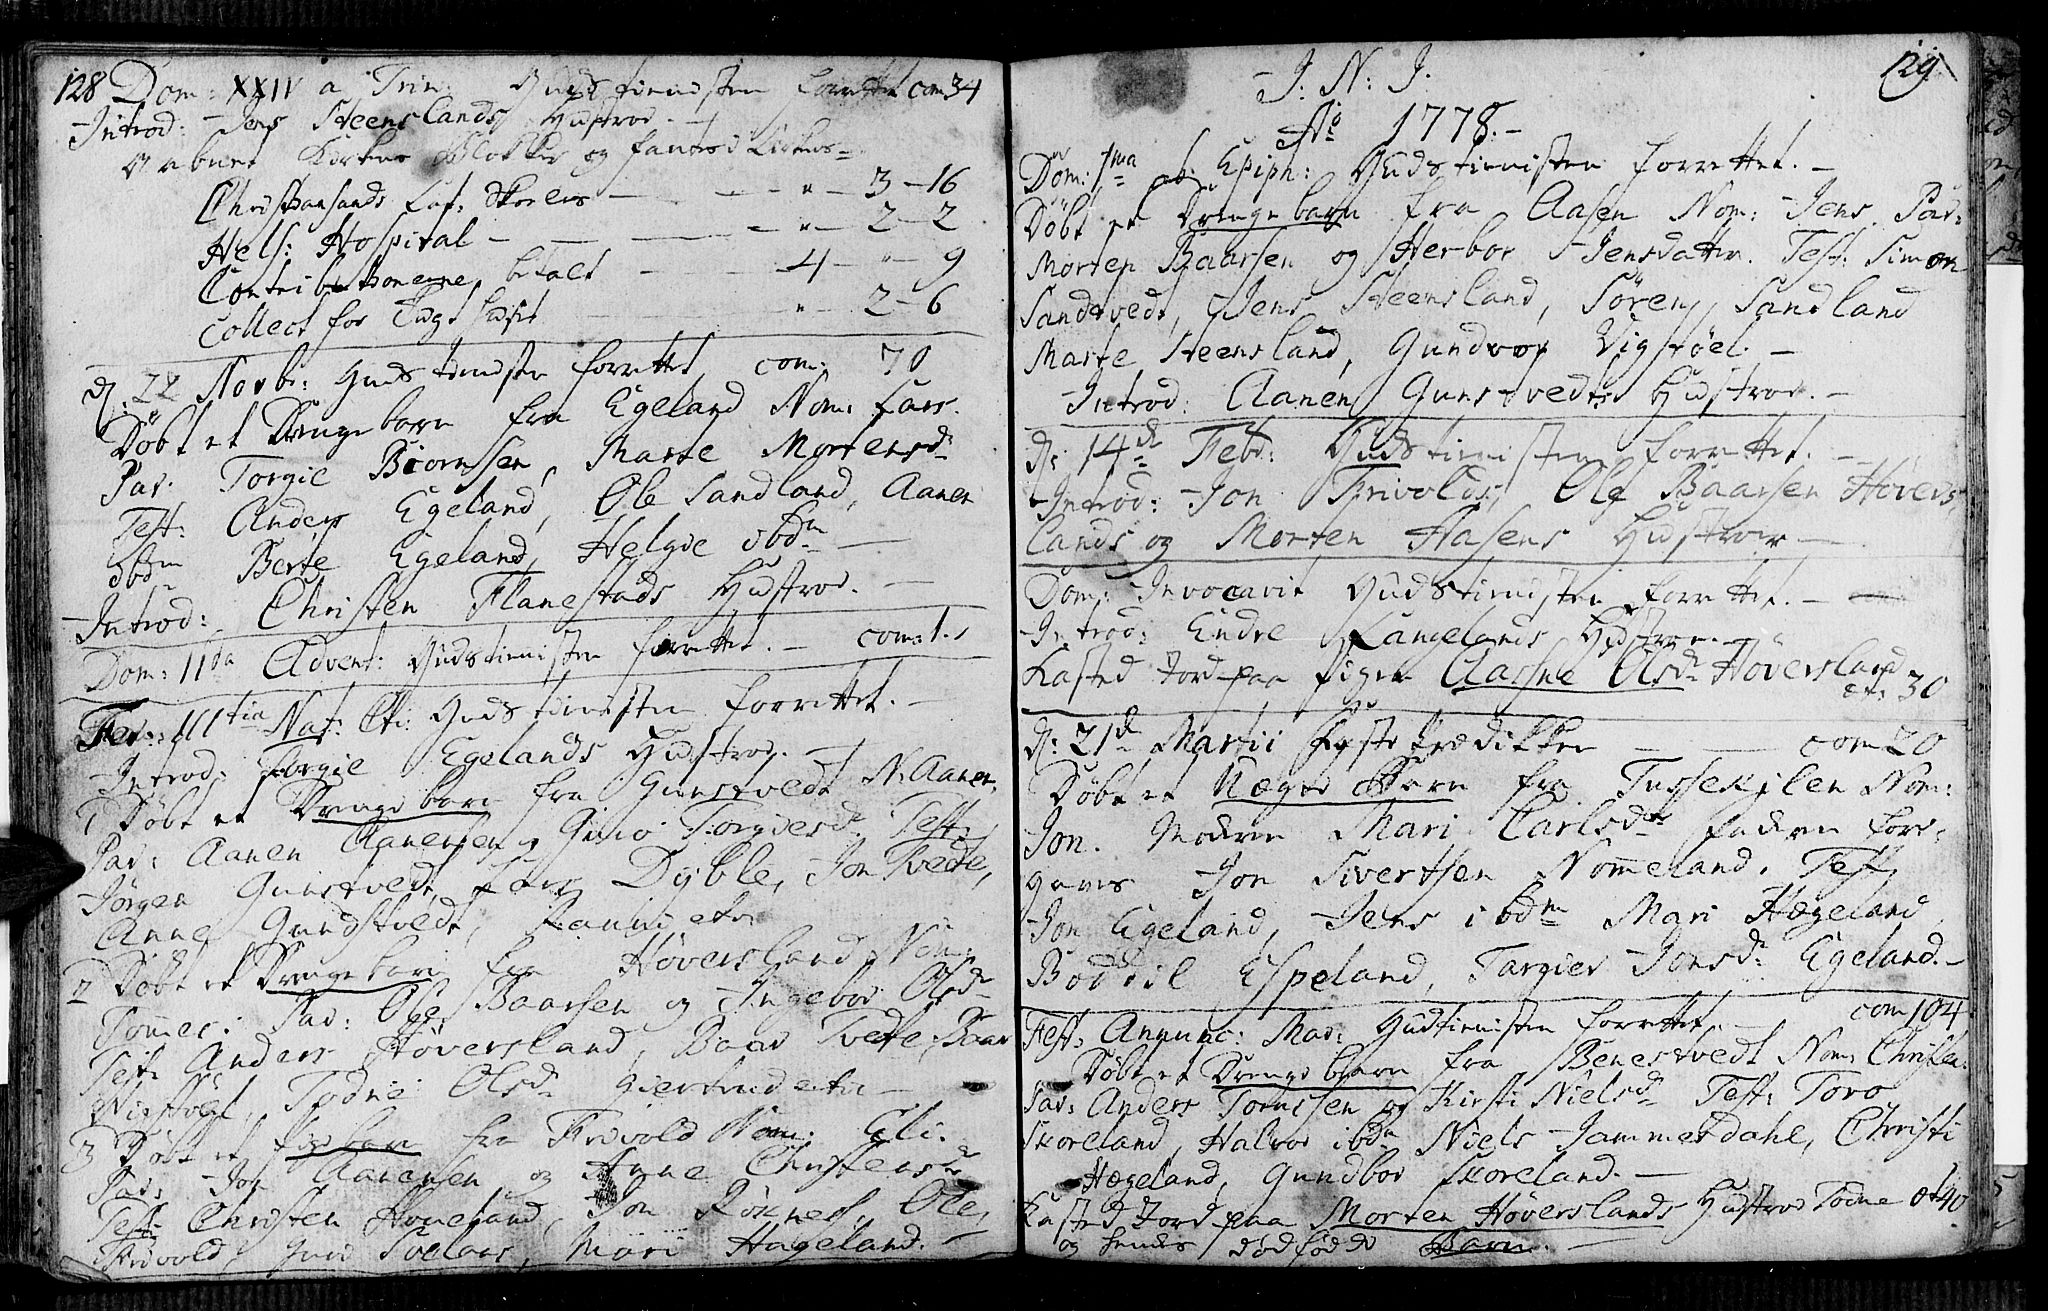 128 Dom: XXIV a Trin: Gudstienisten forrettet com 34
Introd: Jens Steenslands Hustroe. -
Aabnet Kirkens Blokker og fantes i Kirkens -
Christiansands Lat: Skoles - " - 3 - 16
Hels: Hospital - " - 2 - 2
Contributionerne betalt - 4 - " - 9
Collect for Tugthuset " - 2 - 6
d. 22 Novb: Gudstienisten forrettet com: 70
Døbt et Drengebarn fra Egeland Nom: Lars.
Par: Torgie Biornssen, Marte Mortensdr
Test: Anders Egeland, Ole Sandland, Aanen
ibdm Berte Egeland, Helgie ibdm -
Introd: Christen Flanestads Hustroe. -
Dom: IIda Advent: Gudstienisten forrettet. - com: 1.
Fer: IIItia Nat: Cti: Gudstienisten forrettet. -
Introd: Torgie Egelands Hustroe. -
1 Døbt et Drengebarn fra Gunstvedt N: Aanen,
Par: Aanen Aanensen og Guro Torgiesdr Test:
Jørgen Gunstvedt, Lars Dyble, Jon Tvedte,
Anne Gundstvedt,
2 Døbt et Drengebarn fra Høversland Nom:
Tommes: Par: Ole Baarsen og Ingebor Olsdr
Test: Anders Høversland, Baar Tvedte, Baar
Vigstøel, Todne Olsdr
3 Døbt et Pigebarn fra Frivold Nom: Eli.
Par: Jon Aanensen og Anne Christensdr
Test: Christen Honeland, Jon Røxnes, Ole
Frivold, Mari Hageland. -
129
I: N: I.
Ao 1778. -
Dom: 1ma ab Epiph: Gudstienisten forrettet. -
Døbt et Drengebarn fra Aasen Nom: Jens Par:
Morten Baarsen og Herbor Jensdatter. Test: Simon
Sandtvedt, Jens Steensland, Søren Sandland
Marte Steensland, Gundvor Vigstøel. -
Introd: Aanen Gunstvedts Hustroe. -
d. 14de Feb: Gudstienisten forrettet. -
Introd: Jon Frivolds, Ole Baarsen Høvers-
lands og Morten Aasens Hustroer -
Dom: Invocavit Gudstienisten forrettet. -
Introd: Endre Langelands Hustroe. -
Kasted Jord paa Pigen Aasne Olsdr Høversland
æt: 30
d. 21de Martii Første Prædikken - com 20
Døbt et Uægte Barn fra Tusseksilen Nom:
Jon. Moderen Mari Carlsdr Faderen fore-
gaves Jon Sivertsen Nomeland. Test:
Jon Egeland, Jens ibdm Mari Hægeland
Boddil Espeland, Targier Jonsd: Egeland. -
Fest: Annunc: Mar: Gudstienisten forrettet. - com 104
Døbt et Drengebarn fra Benestvedt Nom: Christen.
Par: Anders Tornssen og Kirsti Nielsdr Test: Toro
Skoreland, Halvor ibdm Niels Jammersdahl, Christi
Hægeland, Gundbor Skoreland. -
Kasted Jord paa Morten Høverslands Hustroe Todne æt 40
og hendes dødfødde Barn. -